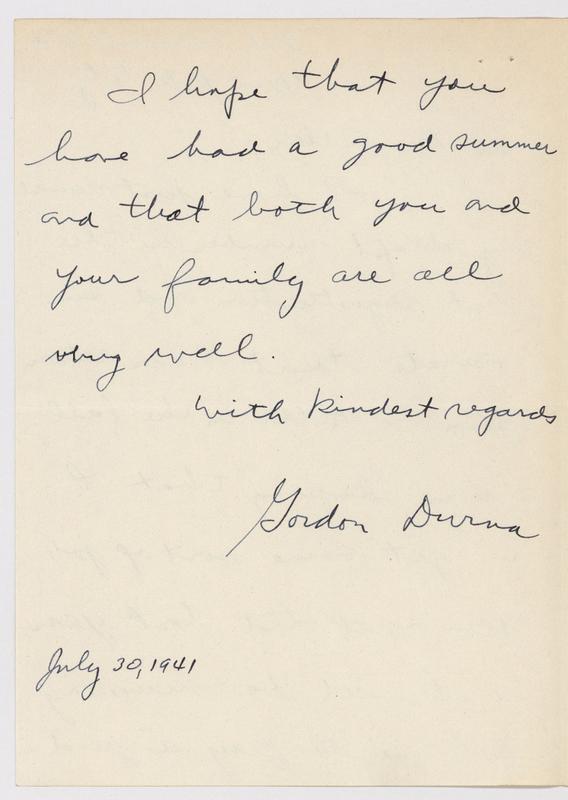 I hope that you
have had a good summer
and that both you and
your family are all
very well.
with kindest regards
Gordon Durna
July 30, 1941